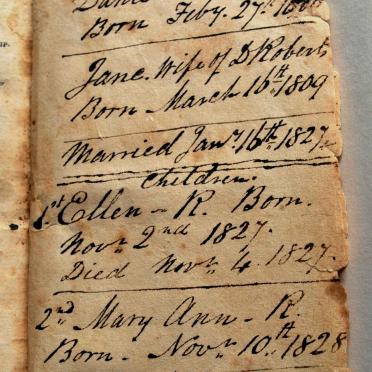 Born Feby. 27th
Jane. Wife of D Roberts
Born - March 16th 1809
Married Jany. 16th 1827.
Children.
1st Ellen - R. Born.
Novr. 2nd 1827.
Died Novr. 4. 1827.
2nd Mary Ann - R.
Born. - Novr. 10th 1828